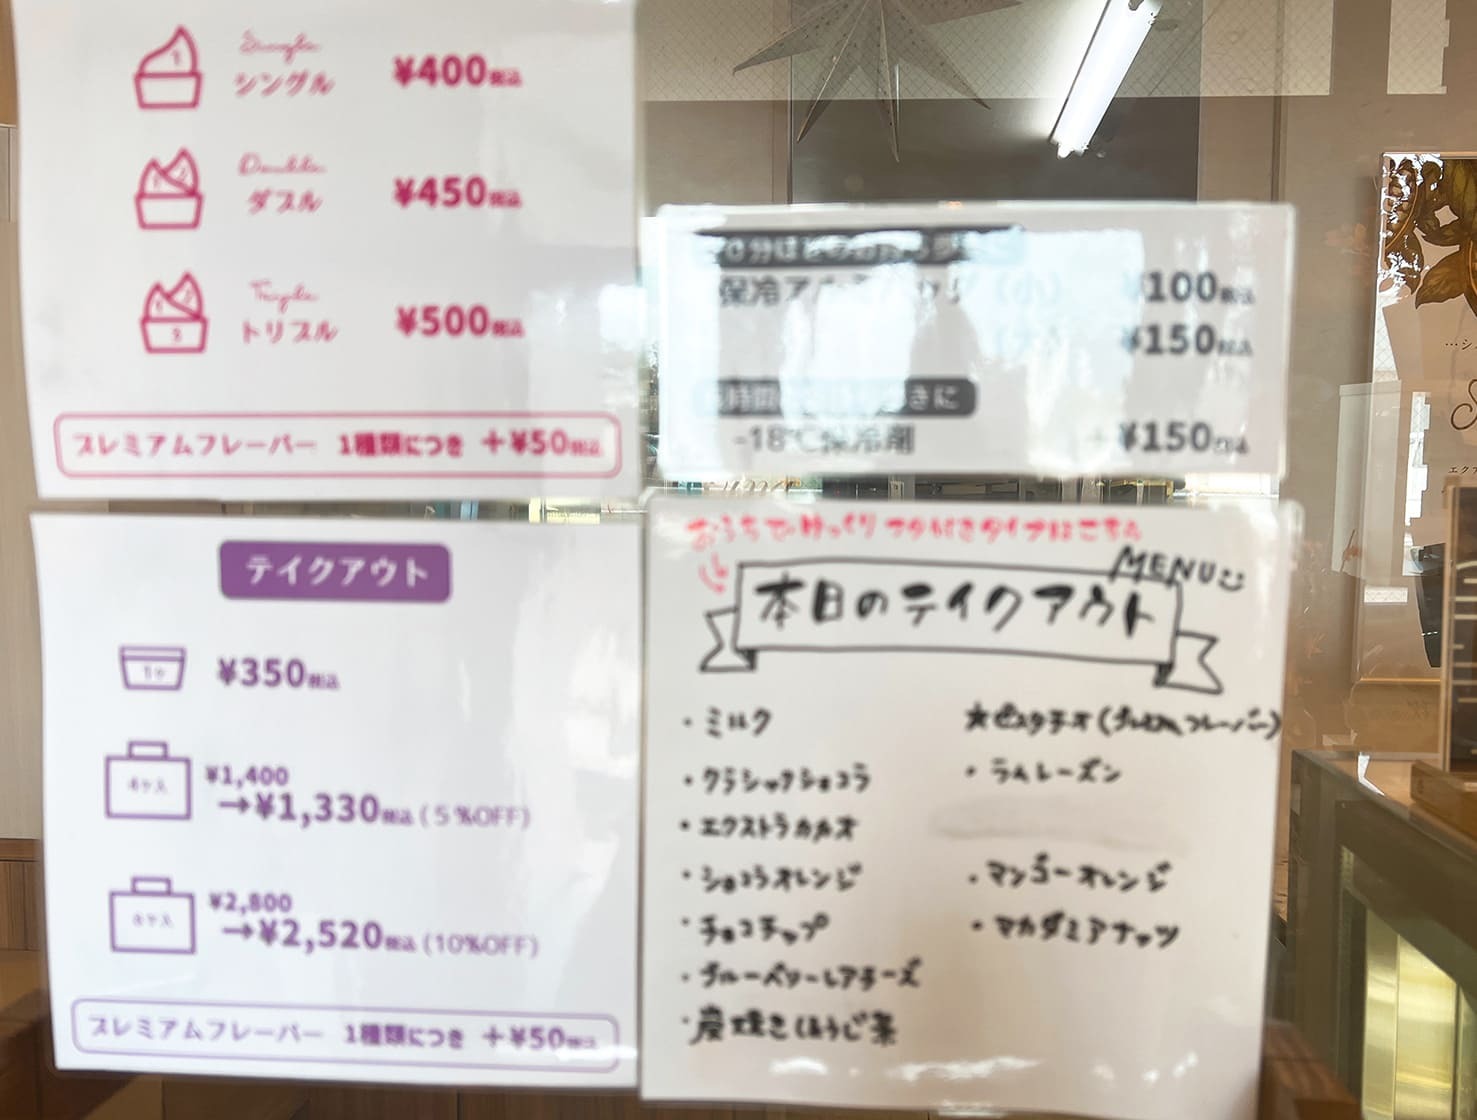 Single
シングル ¥400税込
Double
ダブル ¥450税込
Triple
トリプル ¥500税込
プレミアムフレーバー 1種類につき +¥50税込
保冷アルミバッグ (小) ¥100税込
(大) ¥150税込
-18℃保冷剤 +¥150税込
テイクアウト
1ケ ¥350税込
4ケ入 ¥1,400
→¥1,330税込(5%OFF)
8ケ入 ¥2,800
→¥2,520税込(10%OFF)
プレミアムフレーバー 1種類につき +¥50税込
おうちでゆっくり フタ付きタイプはこちら
MENU
本日のテイクアウト
・ミルク
・クラシックショコラ
・エクストラカカオ
・ショコラオレンジ
・チョコチップ
・ブルーベリーレアチーズ
・炭焼きほうじ茶
★ピスタチオ(プレミアムフレーバー)
・ラムレーズン
・マンゴーオレンジ
・マカダミアナッツ